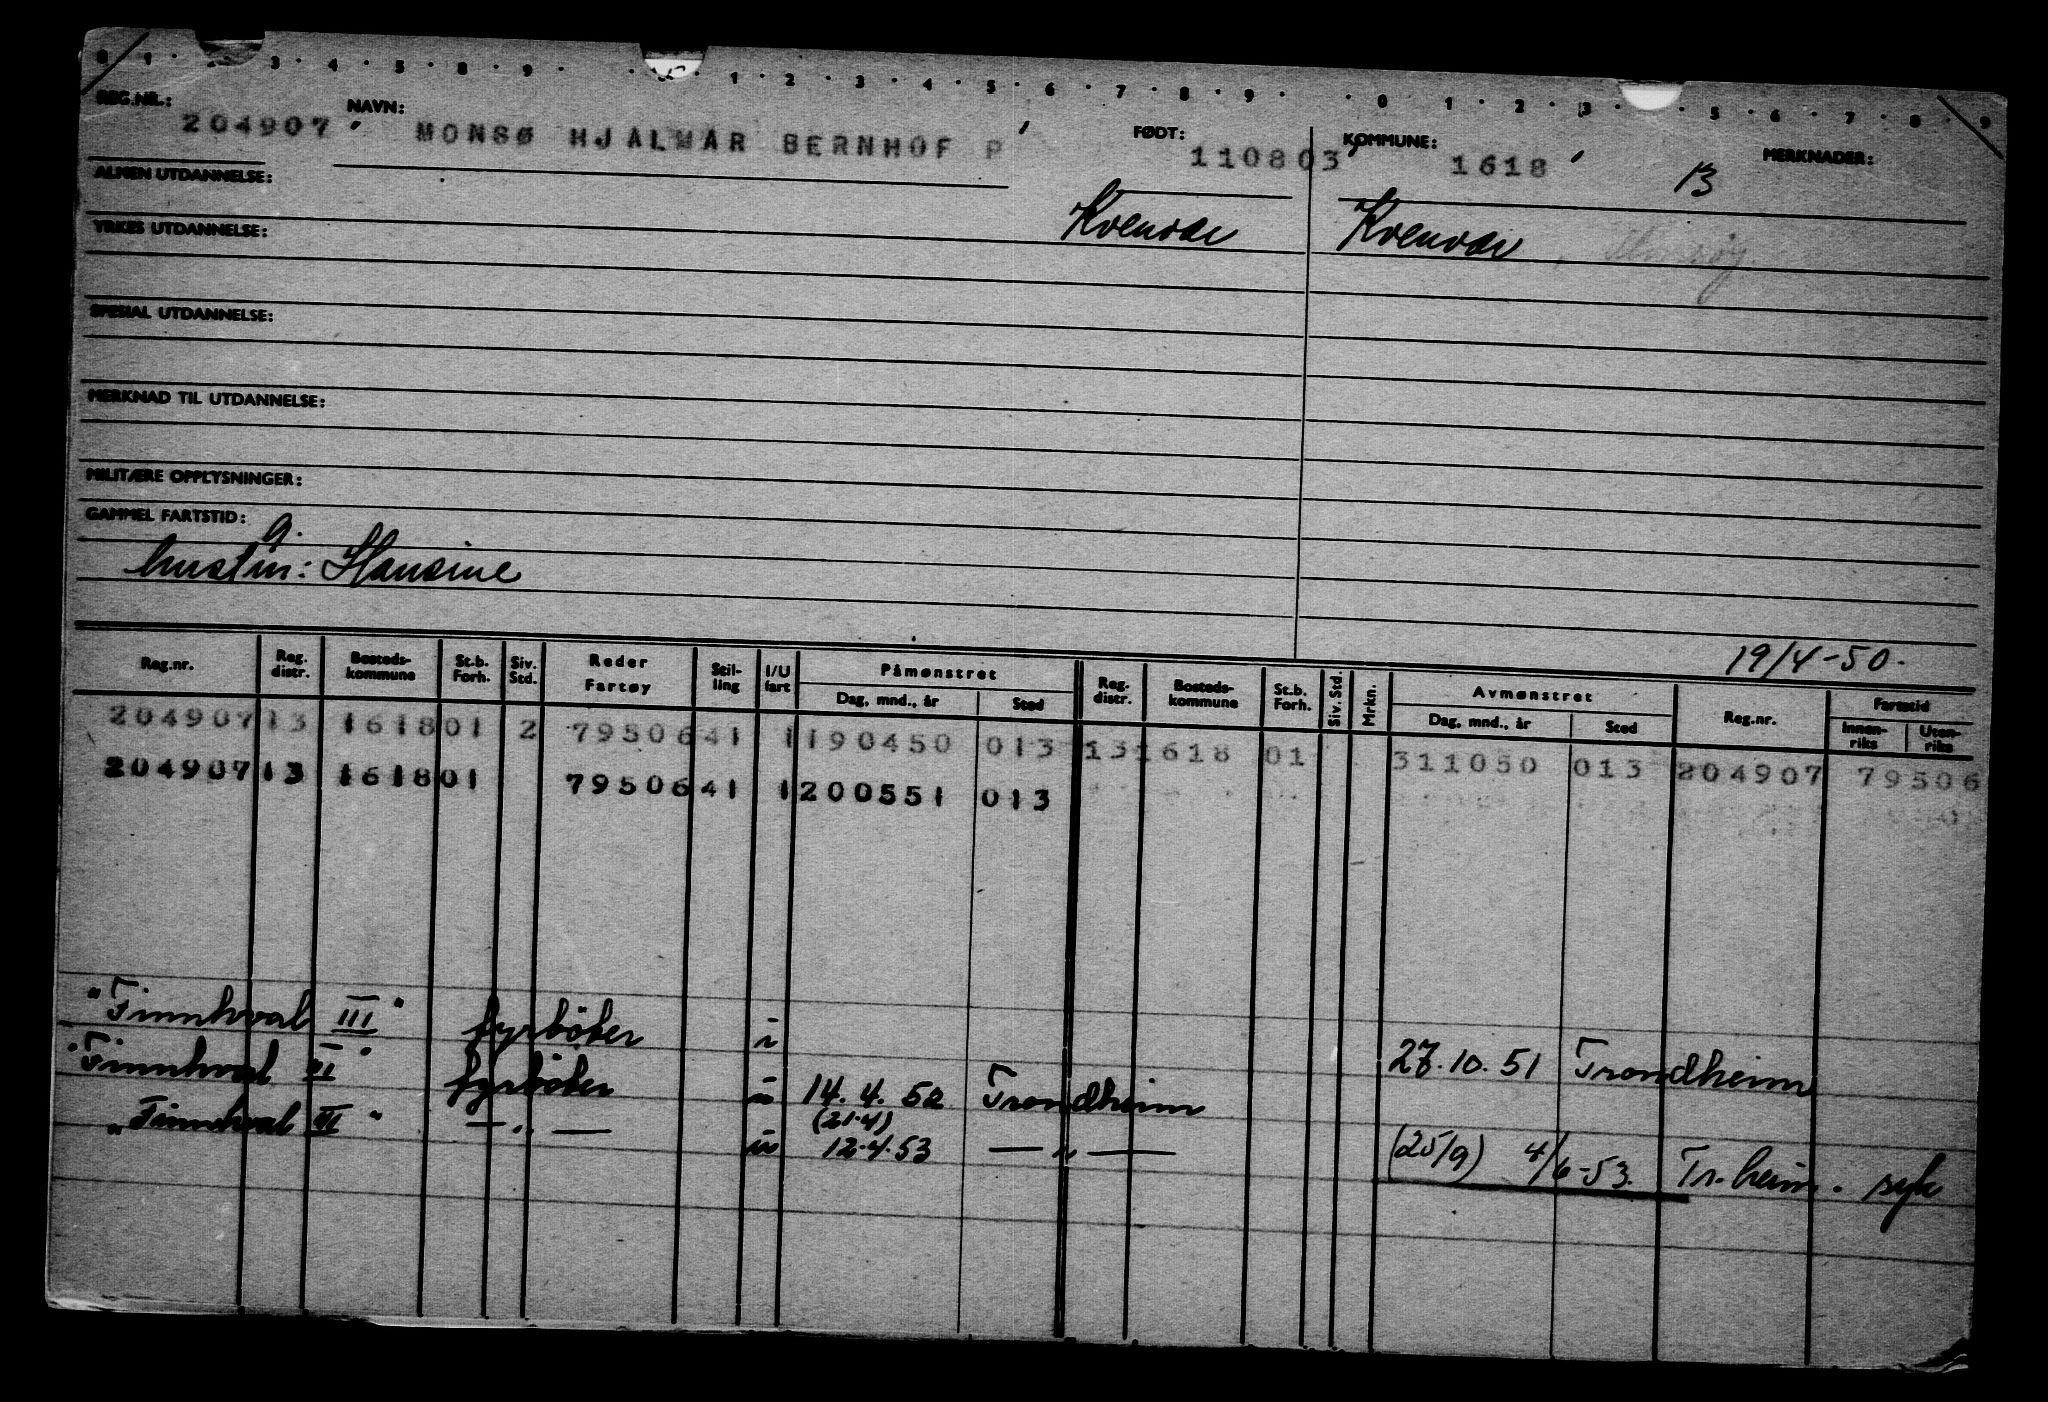 0 1 · 3 · 4 · 5 · 8 · 9 · · 1 · 2 · 3 · 4 · 5 · 6 · 7 · 8 · 9 · · 0 1 · 2 · 3 · · 5 · 6 · 7 · 8 · 9
REG.NR.: NAVN: FØDT: KOMMUNE: MERKNADER:
204907 MONSØ HJALMAR BERNHOF P 110803 1618 13
ALMEN UTDANNELSE:
Kvenvær Kvenvær,
YRKES UTDANNELSE:
SPESIAL UTDANNELSE:
MERKNAD TIL UTDANNELSE:
MILITÆRE OPPLYSNINGER:
GAMMEL FARTSTID:
g.
hustru: Hansine
19/4-50.
Reg.nr. Reg. distr. Bosteds-kommune St.b. Forh. Siv. Std. Reder Fartøy Stil-ling I/U fart Påmønstret Dag, mnd., år Sted Reg. distr. Bosteds-kommune St.b. Forh. Siv. Std. Mrkn. Avmønstret Dag, mnd., år Sted Reg.nr. Fartstid Innen-riks Uten-riks
204907 13 1618 01 2 79506 41 1 190450 013 13 1618 01 311050 013 204907 79506
204907 13 1618 01 79506 41 1 200551 013
"Finnhval III" fyrbøter i 27.10.51 Trondheim
"Finnhval III" fyrbøter in 14.4.52 Trondheim
(21.4)
"Finnhval III" — " — in 12.4.53 — " — (25/9) 4/6-53. Tr.heim. syk